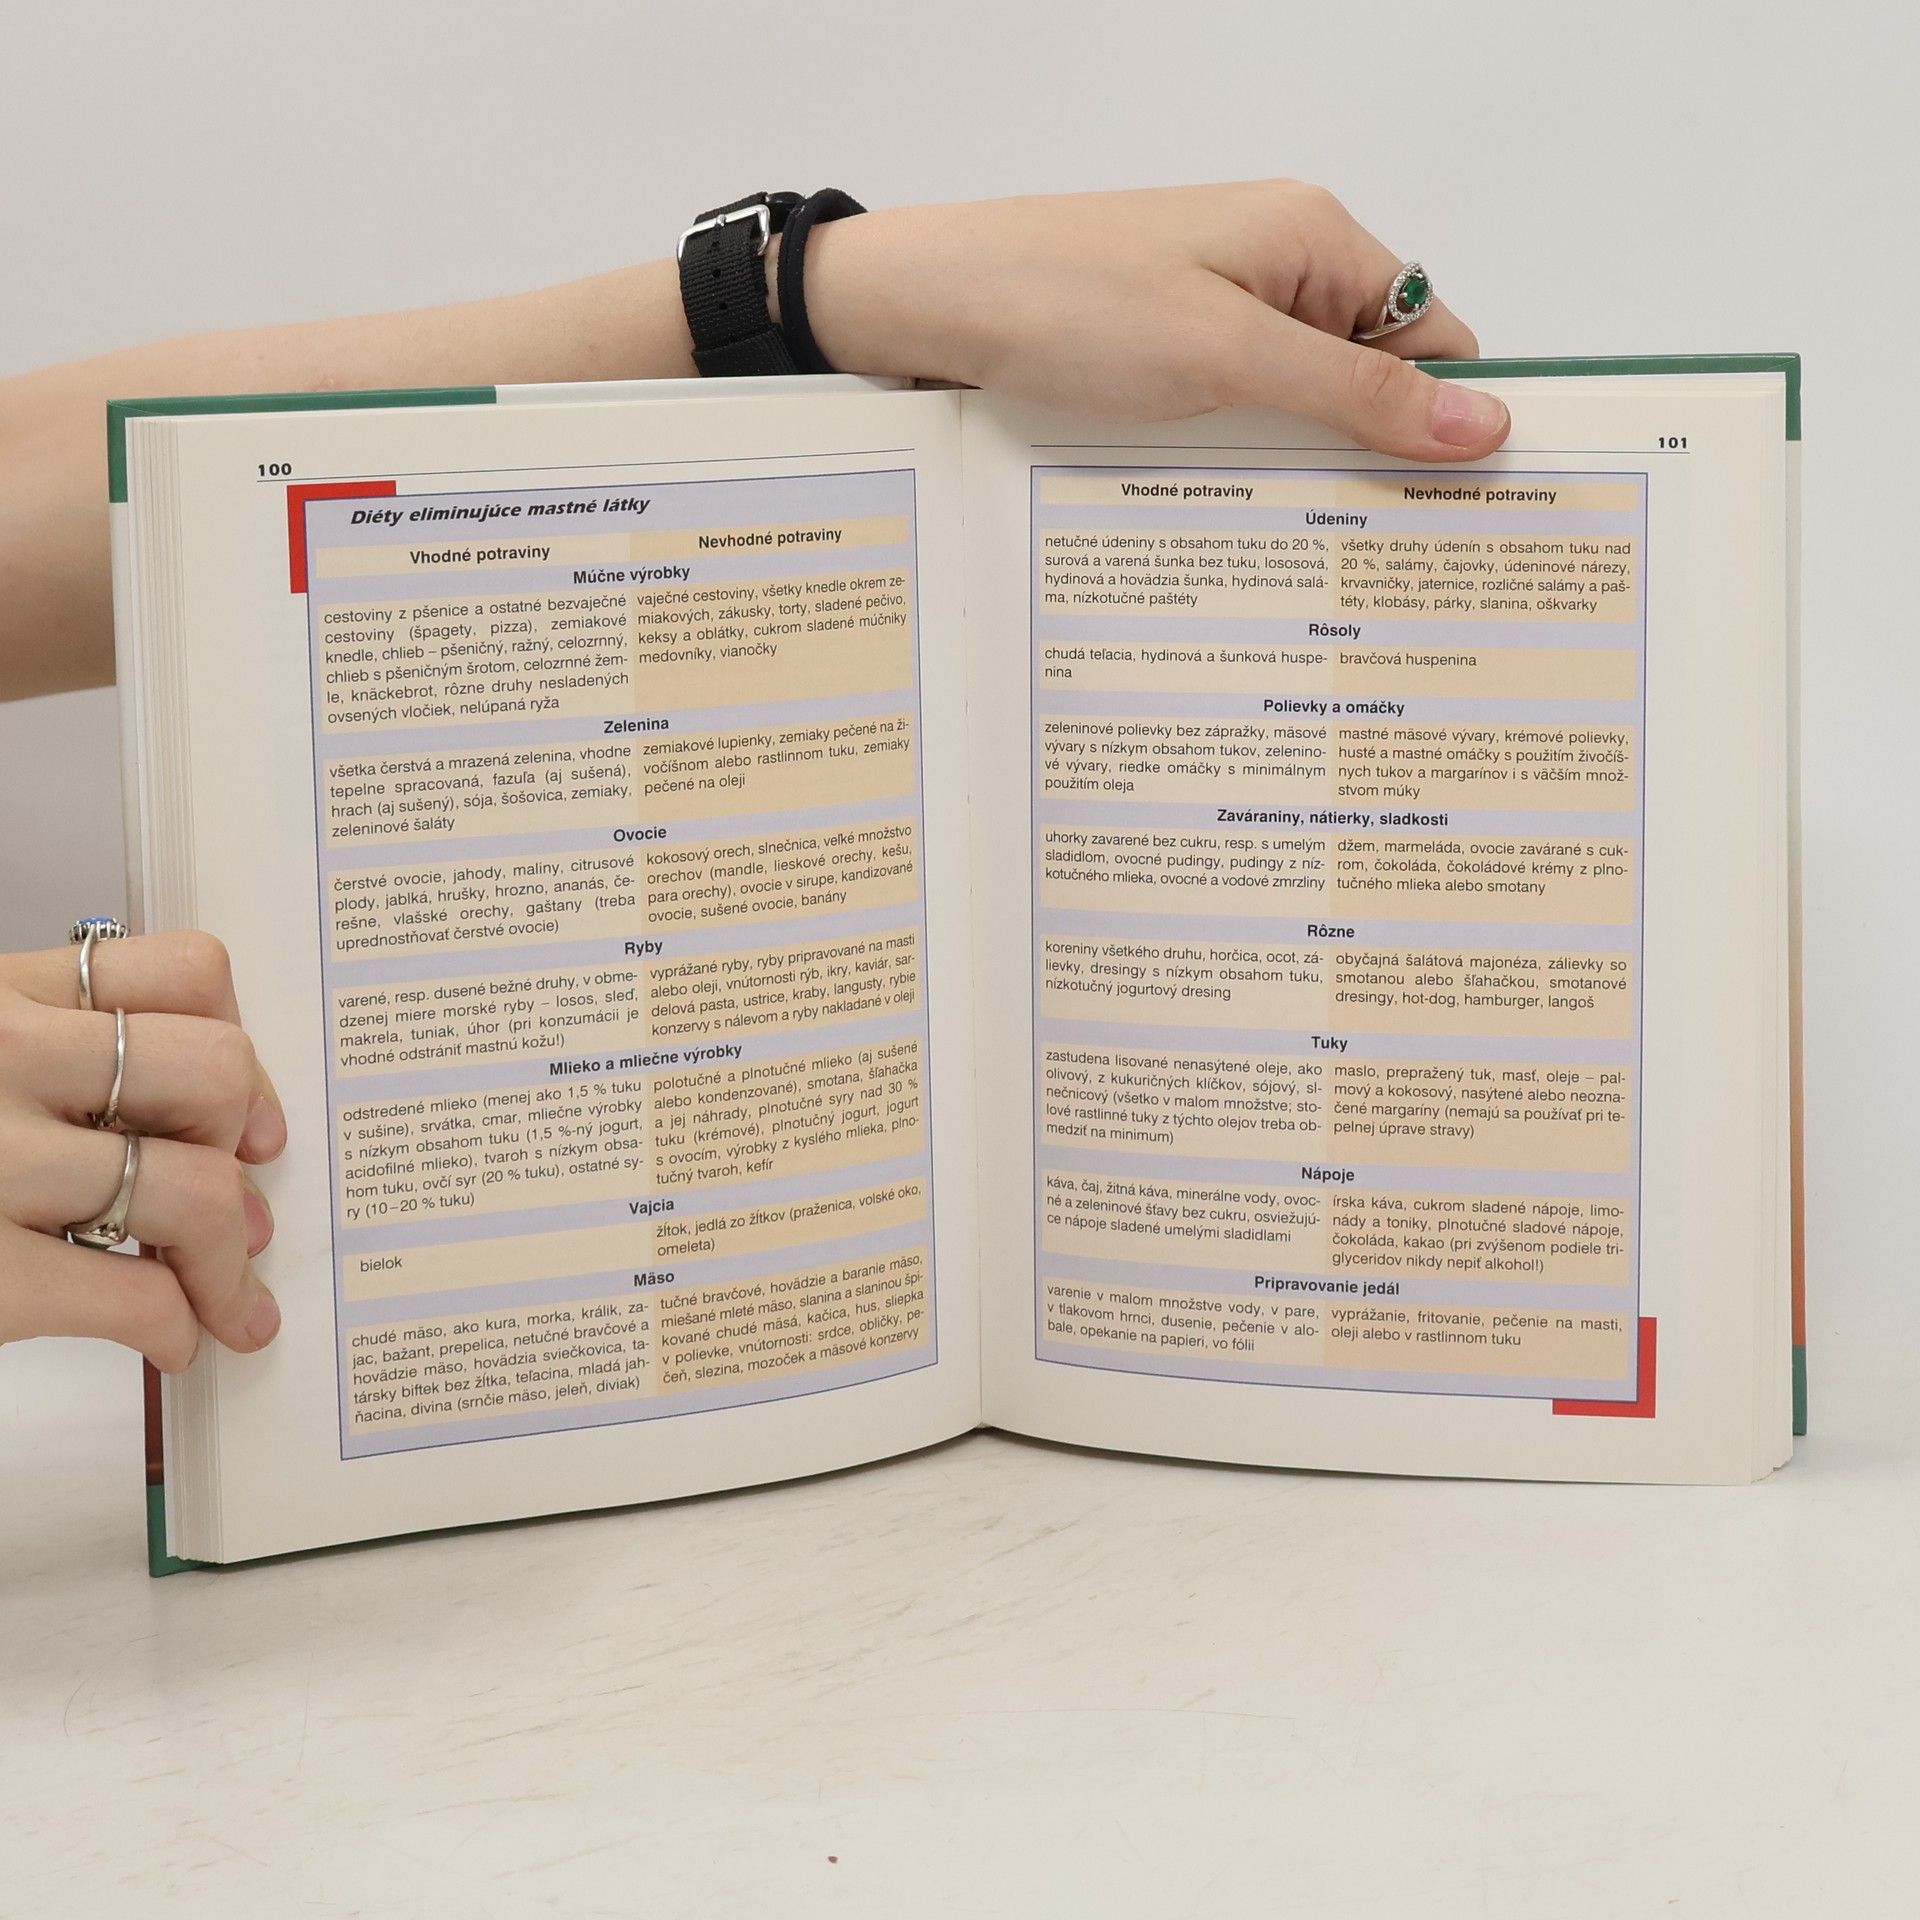 100
Diéty eliminujúce mastné látky
Vhodné potraviny
Nevhodné potraviny
Múčne výrobky
cestoviny z pšenice a ostatné bezvaječné
cestoviny (špagety, pizza), zemiakové
knedle, chlieb – pšeničný, ražný, celozrnný,
chlieb s pšeničným šrotom, celozrnné žem-
le, knäckebrot, rôzne druhy nesladených
ovsených vločiek, nelúpaná ryža
vaječné cestoviny, všetky knedle okrem ze-
miakových, zákusky, torty, sladené pečivo,
keksy a oblátky, cukrom sladené múčniky
medovníky, vianočky
Zelenina
všetka čerstvá a mrazená zelenina, vhodne
tepelne spracovaná, fazuľa (aj sušená),
hrach (aj sušený), sója, šošovica, zemiaky,
zeleninové šaláty
zemiakové lupienky, zemiaky pečené na ži-
vočíšnom alebo rastlinnom tuku, zemiaky
pečené na oleji
Ovocie
čerstvé ovocie, jahody, maliny, citrusové
plody, jablká, hrušky, hrozno, ananás, če-
rešne, vlašské orechy, gaštany (treba
uprednostňovať čerstvé ovocie)
kokosový orech, slnečnica, veľké množstvo
orechov (mandle, lieskové orechy, kešu,
para orechy), ovocie v sirupe, kandizované
ovocie, sušené ovocie, banány
Ryby
varené, resp. dusené bežné druhy, v obme-
dzenej miere morské ryby – losos, sleď,
makrela, tuniak, úhor (pri konzumácii je
vhodné odstrániť mastnú kožu!)
vyprážané ryby, ryby pripravované na masti
alebo oleji, vnútornosti rýb, ikry, kaviár, sar-
delová pasta, ustrice, kraby, langusty, rybie
konzervy s nálevom a ryby nakladané v oleji
Mlieko a mliečne výrobky
odstredené mlieko (menej ako 1,5 % tuku
v sušine), srvátka, cmar, mliečne výrobky
s nízkym obsahom tuku (1,5 %-ný jogurt,
acidofilné mlieko), tvaroh s nízkym obsa-
hom tuku, ovčí syr (20 % tuku), ostatné sy-
ry (10–20 % tuku)
polotučné a plnotučné mlieko (aj sušené
alebo kondenzované), smotana, šľahačka
a jej náhrady, plnotučné syry nad 30 %
tuku (krémové), plnotučný jogurt, jogurt
s ovocím, výrobky z kyslého mlieka, plno-
tučný tvaroh, kefír
Vajcia
bielok
žĺtok, jedlá zo žĺtkov (praženica, volské oko,
omeleta)
Mäso
chudé mäso, ako kura, morka, králik, za-
jac, bažant, prepelica, netučné bravčové a
hovädzie mäso, hovädzia sviečkovica, ta-
társky biftek bez žĺtka, teľacina, mladá jah-
ňacina, divina (srnčie mäso, jeleň, diviak)
tučné bravčové, hovädzie a baranie mäso,
miešané mleté mäso, slanina a slaninou špi-
kované chudé mäsá, kačica, hus, sliepka
v polievke, vnútornosti: srdce, obličky, pe-
čeň, slezina, mozoček a mäsové konzervy
101
Vhodné potraviny
Nevhodné potraviny
Údeniny
netučné údeniny s obsahom tuku do 20 %,
surová a varená šunka bez tuku, lososová,
hydinová a hovädzia šunka, hydinová salá-
ma, nízkotučné paštéty
všetky druhy údenín s obsahom tuku nad
20 %, salámy, čajovky, údeninové nárezy,
krvavničky, jaternice, rozličné salámy a paš-
téty, klobásy, párky, slanina, oškvarky
Rôsoly
chudá teľacia, hydinová a šunková huspe-
nina
bravčová huspenina
Polievky a omáčky
zeleninové polievky bez zápražky, mäsové
vývary s nízkym obsahom tukov, zelenino-
vé vývary, riedke omáčky s minimálnym
použitím oleja
mastné mäsové vývary, krémové polievky,
husté a mastné omáčky s použitím živočíš-
nych tukov a margarínov i s väčším množ-
stvom múky
Zaváraniny, nátierky, sladkosti
uhorky zavarené bez cukru, resp. s umelým
sladidlom, ovocné pudingy, pudingy z níz-
kotučného mlieka, ovocné a vodové zmrzliny
džem, marmeláda, ovocie zavárané s cuk-
rom, čokoláda, čokoládové krémy z plno-
tučného mlieka alebo smotany
Rôzne
koreniny všetkého druhu, horčica, ocot, zá-
lievky, dresingy s nízkym obsahom tuku,
nízkotučný jogurtový dresing
obyčajná šalátová majonéza, zálievky so
smotanou alebo šľahačkou, smotanové
dresingy, hot-dog, hamburger, langoš
Tuky
zastudena lisované nenasýtené oleje, ako
olivový, z kukuričných klíčkov, sójový, sl-
nečnicový (všetko v malom množstve; sto-
lové rastlinné tuky z týchto olejov treba ob-
medziť na minimum)
maslo, prepražený tuk, masť, oleje – pal-
mový a kokosový, nasýtené alebo neozna-
čené margaríny (nemajú sa používať pri te-
pelnej úprave stravy)
Nápoje
káva, čaj, žitná káva, minerálne vody, ovoc-
né a zeleninové šťavy bez cukru, osviežujú-
ce nápoje sladené umelými sladidlami
írska káva, cukrom sladené nápoje, limo-
nády a toniky, plnotučné sladové nápoje,
čokoláda, kakao (pri zvýšenom podiele tri-
glyceridov nikdy nepiť alkohol!)
Pripravovanie jedál
varenie v malom množstve vody, v pare,
v tlakovom hrnci, dusenie, pečenie v alo-
bale, opekanie na papieri, vo fólii
vyprážanie, fritovanie, pečenie na masti,
oleji alebo v rastlinnom tuku